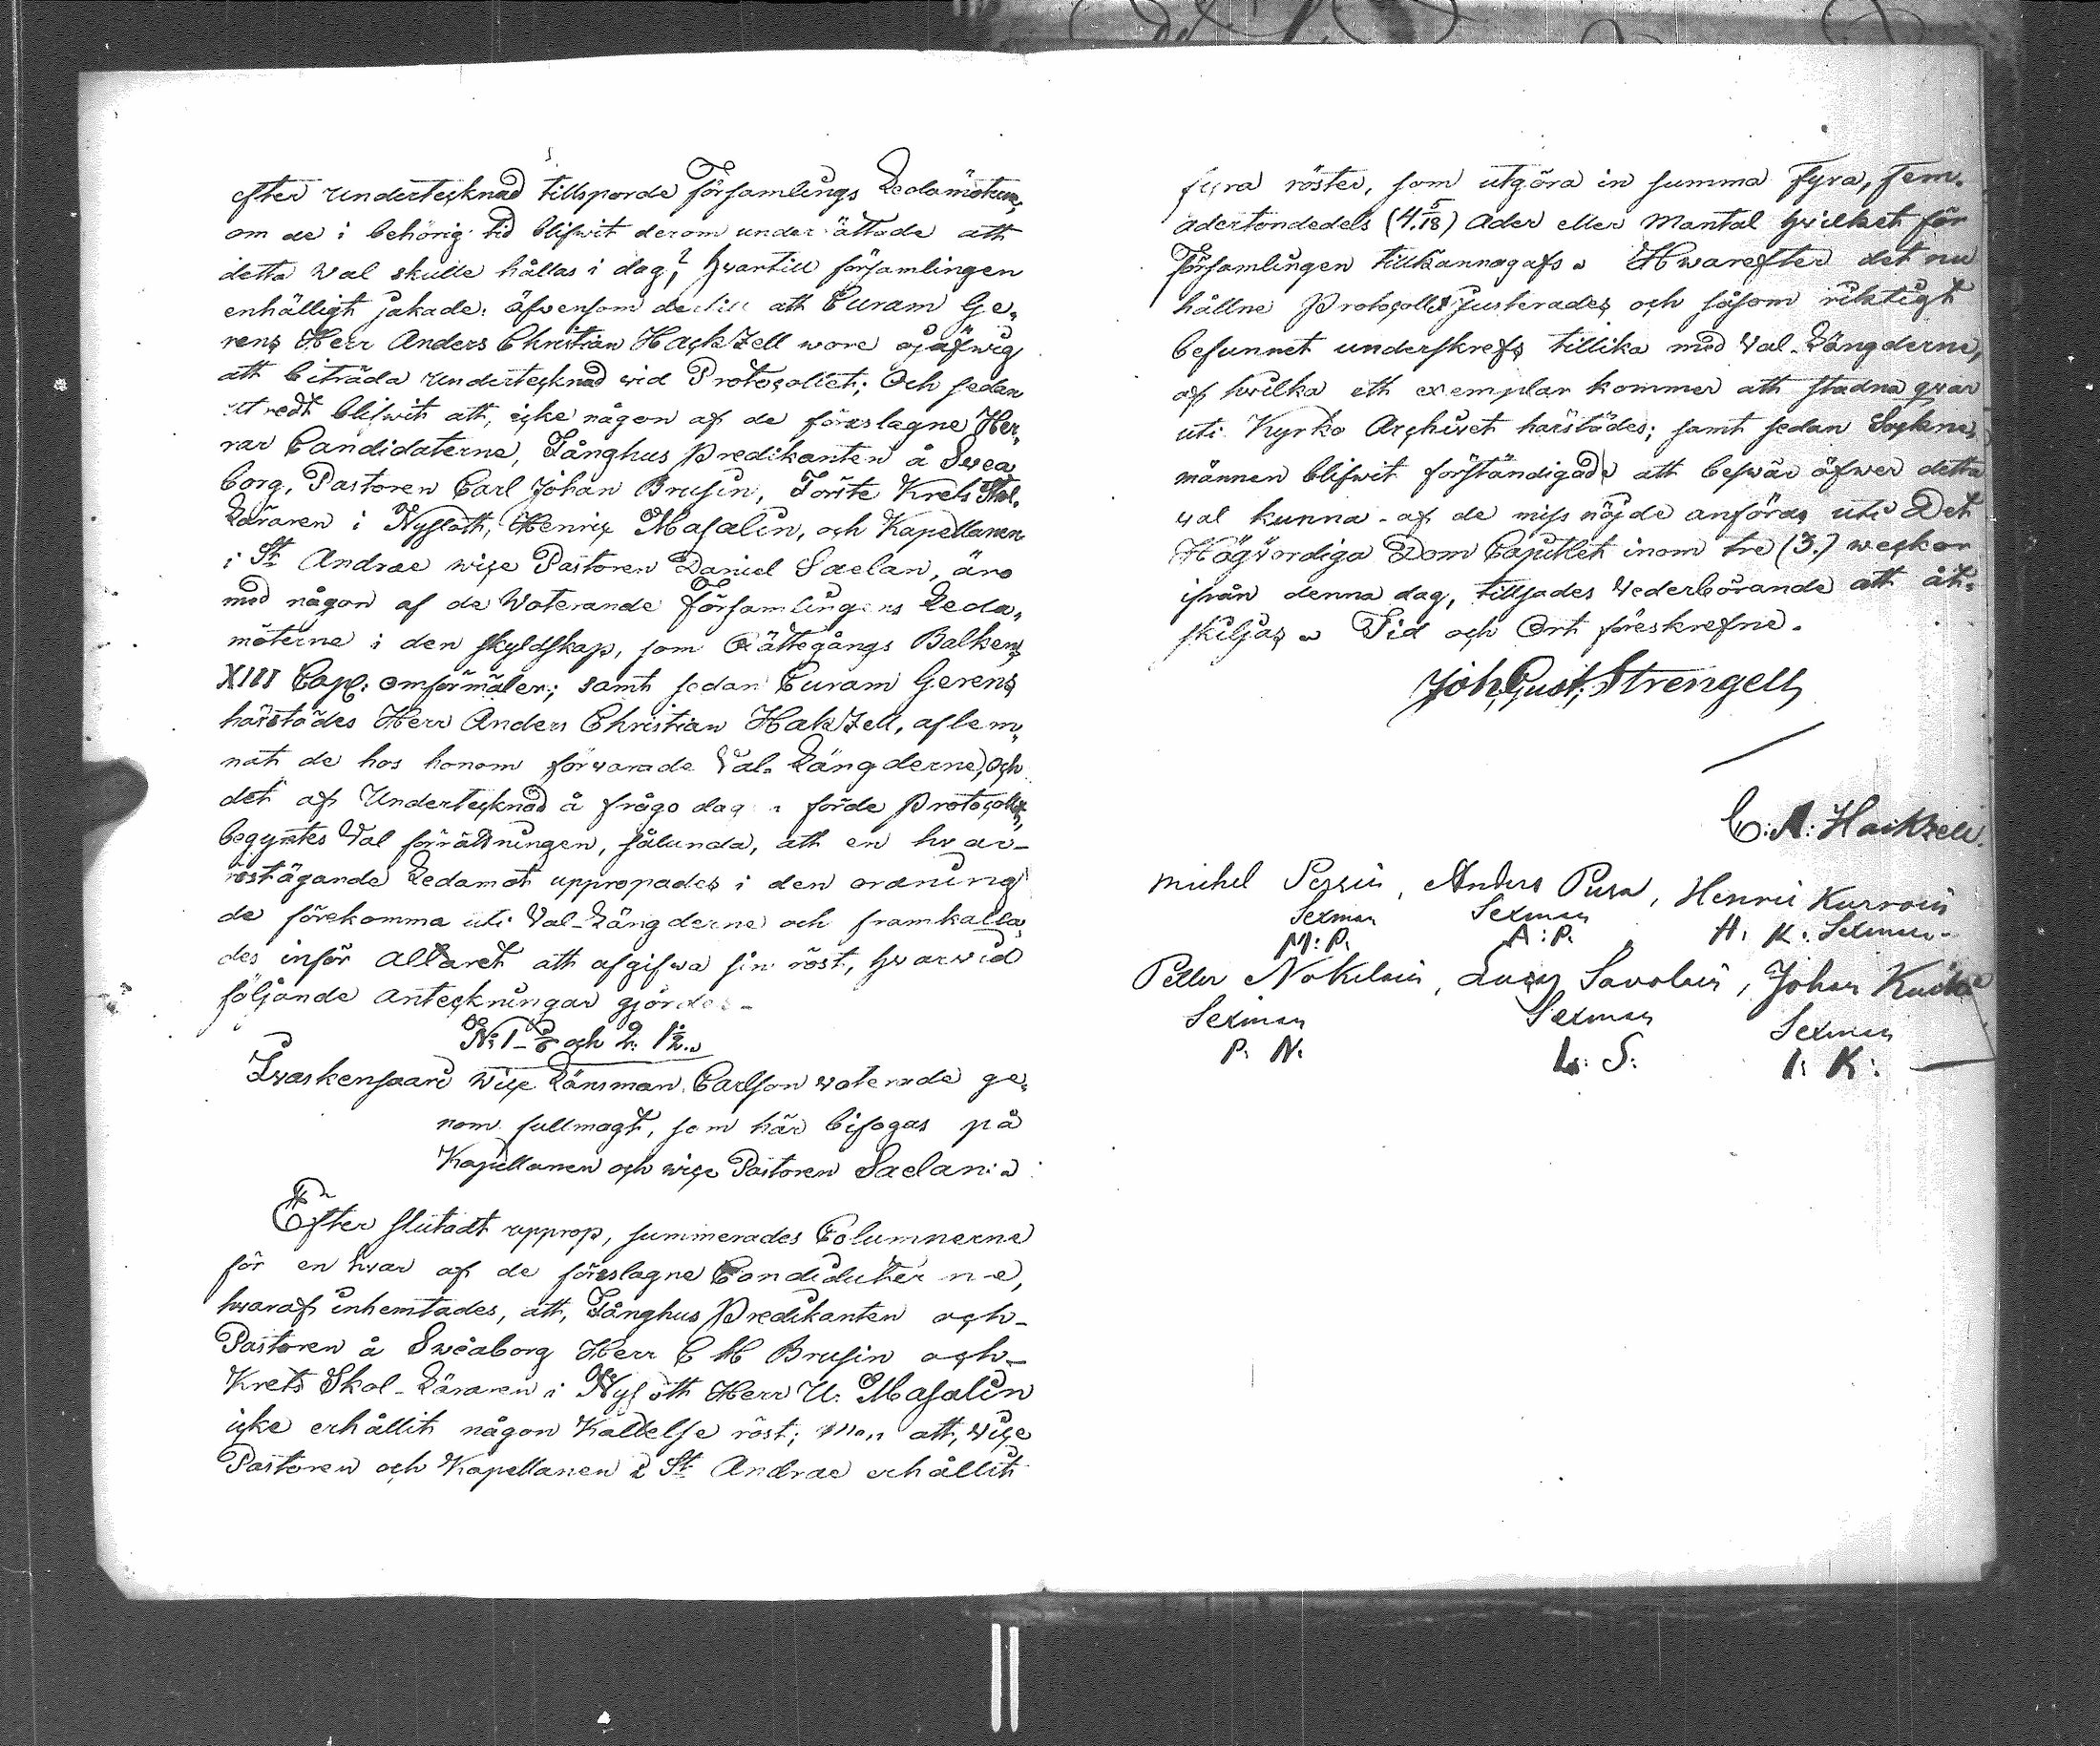 efter Undertecknad tillsporde Församlings Ledamöterne,
om de i behörig tid blifwit derom underrättade att
detta Wal skulle hållas i dag? hwartill församlingen
enhälligt jakade: äfwensom dertill att Curam Ge-
rens Herr Anders Christian Hackzell wore ojäfwig
att biträda Undertecknad wid Protocollet; Och sedan
utredt blifwit att, icke någon af de föreslagne Her-
rar Candidaterne, Fånghus Predikanten å Swea
borg, Pastoren Carl Johan Brusin, Förste Krets Skol-
Läraren i Nyslott, Henric Masalin, och Kapellanen
i St Andrae wice Pastoren Daniel Saelan, äro
med någon af de Woterande Församlingens Leda-
möterne i den skyldskap, som Rättegångs Balkens
XIII Cap: omförmäler; samt sedan Curam Gerens
härstädes Herr Anders Christian Hakzell, aflem-
nat de hos honom förwarade Val-Längderne, och
det af Undertecknad å frågo dag förde Protocollet,
begyntes Val förrättningen, sålunda, att en hwar-
röstägande Ledamot uppropades i den ordning
de förekomma uti Val-Längderne och framkalla-
des inför Altaret att afgifwa sin röst, hwarwid
följande anteckningar gjordes-
No 1 - 5/6 och 2: 1/2.
Iwaskensaari wice Länsman Carlson woterade ge-
nom fullmagt, som här bifogas på
Kapellanen och wice Pastoren Saelan:
Efter slutadt upprop, summerades Columnerne
för en hwar af de föreslagne Candidaterne,
hwaraf inhemtades, att, Fånghus Predikanten och-
Pastoren å Sweaborg Herr C M Brusin och-
Krets Skol-Läraren i Nyslott Herr U. Masalin
icke erhållit någon Kallelse röst; Men att, wice
Pastoren och Kapellanen i St Andrae erhållit
fyra röster, som utgöra in summa Fyra, fem-
adertondedels (4.5/18) Ader eller Mantal hwilket för
Församlingen tillkännagafs. Hwarefter det nu
hållne Protocollet Justerades och såsom riktigt
befunnet underskrefs tillika med Val-Längderne,
af hwilka ett exemplar kommer att stadna qwar
uti Kyrko Archivet härstädes; samt sedan Sockne-
männen blifwit förständigade att beswär öfwer detta
wal kunna af de missnöjde anföras uti Det
Högwördiga Dom Capitlet inom tre (3.) weckor
ifrån denna dag, tillsades Wederbörande att åt-
skiljas. Tid och Ort föreskrefne.
Joh, Gust, Strengell,
C: A: Hackzell.
Michel Anders Pura, Henric
Sexman Sexman
M: P. A: P. H. K: Sexman-
Petter Savolain, Johan
Sexman Sexman Sexman
P. N. L: S: I: K: